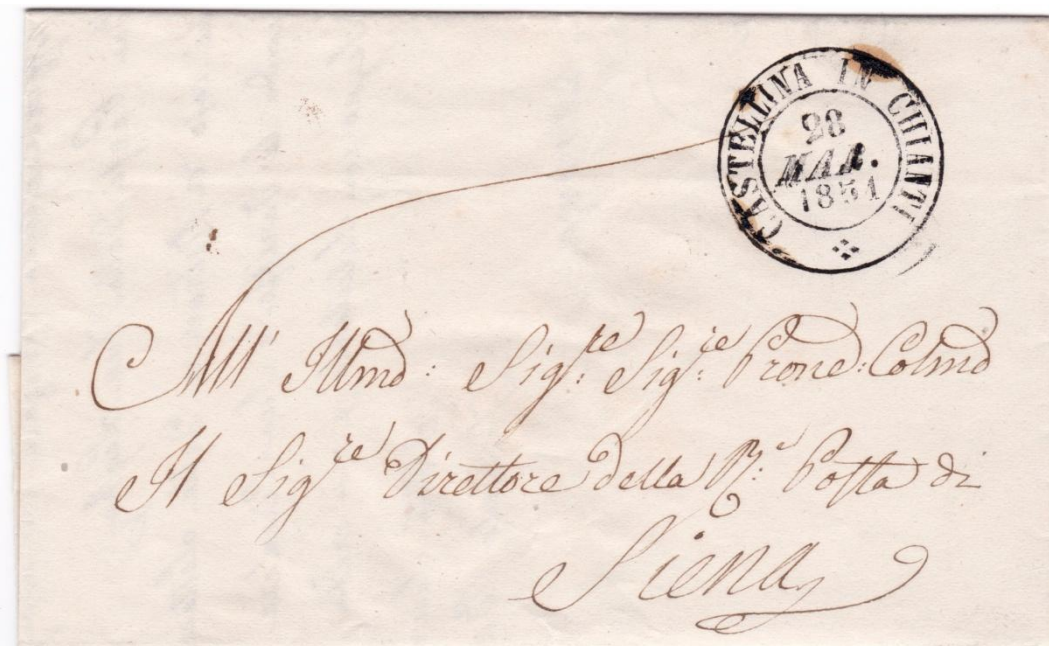 CASTELLINA IN CHIANTI
28
MAR.
1851
All' Illmo: Sigre: Sigre: Prone: Colmo
Il Sigre Direttore della R: Posta di
Siena